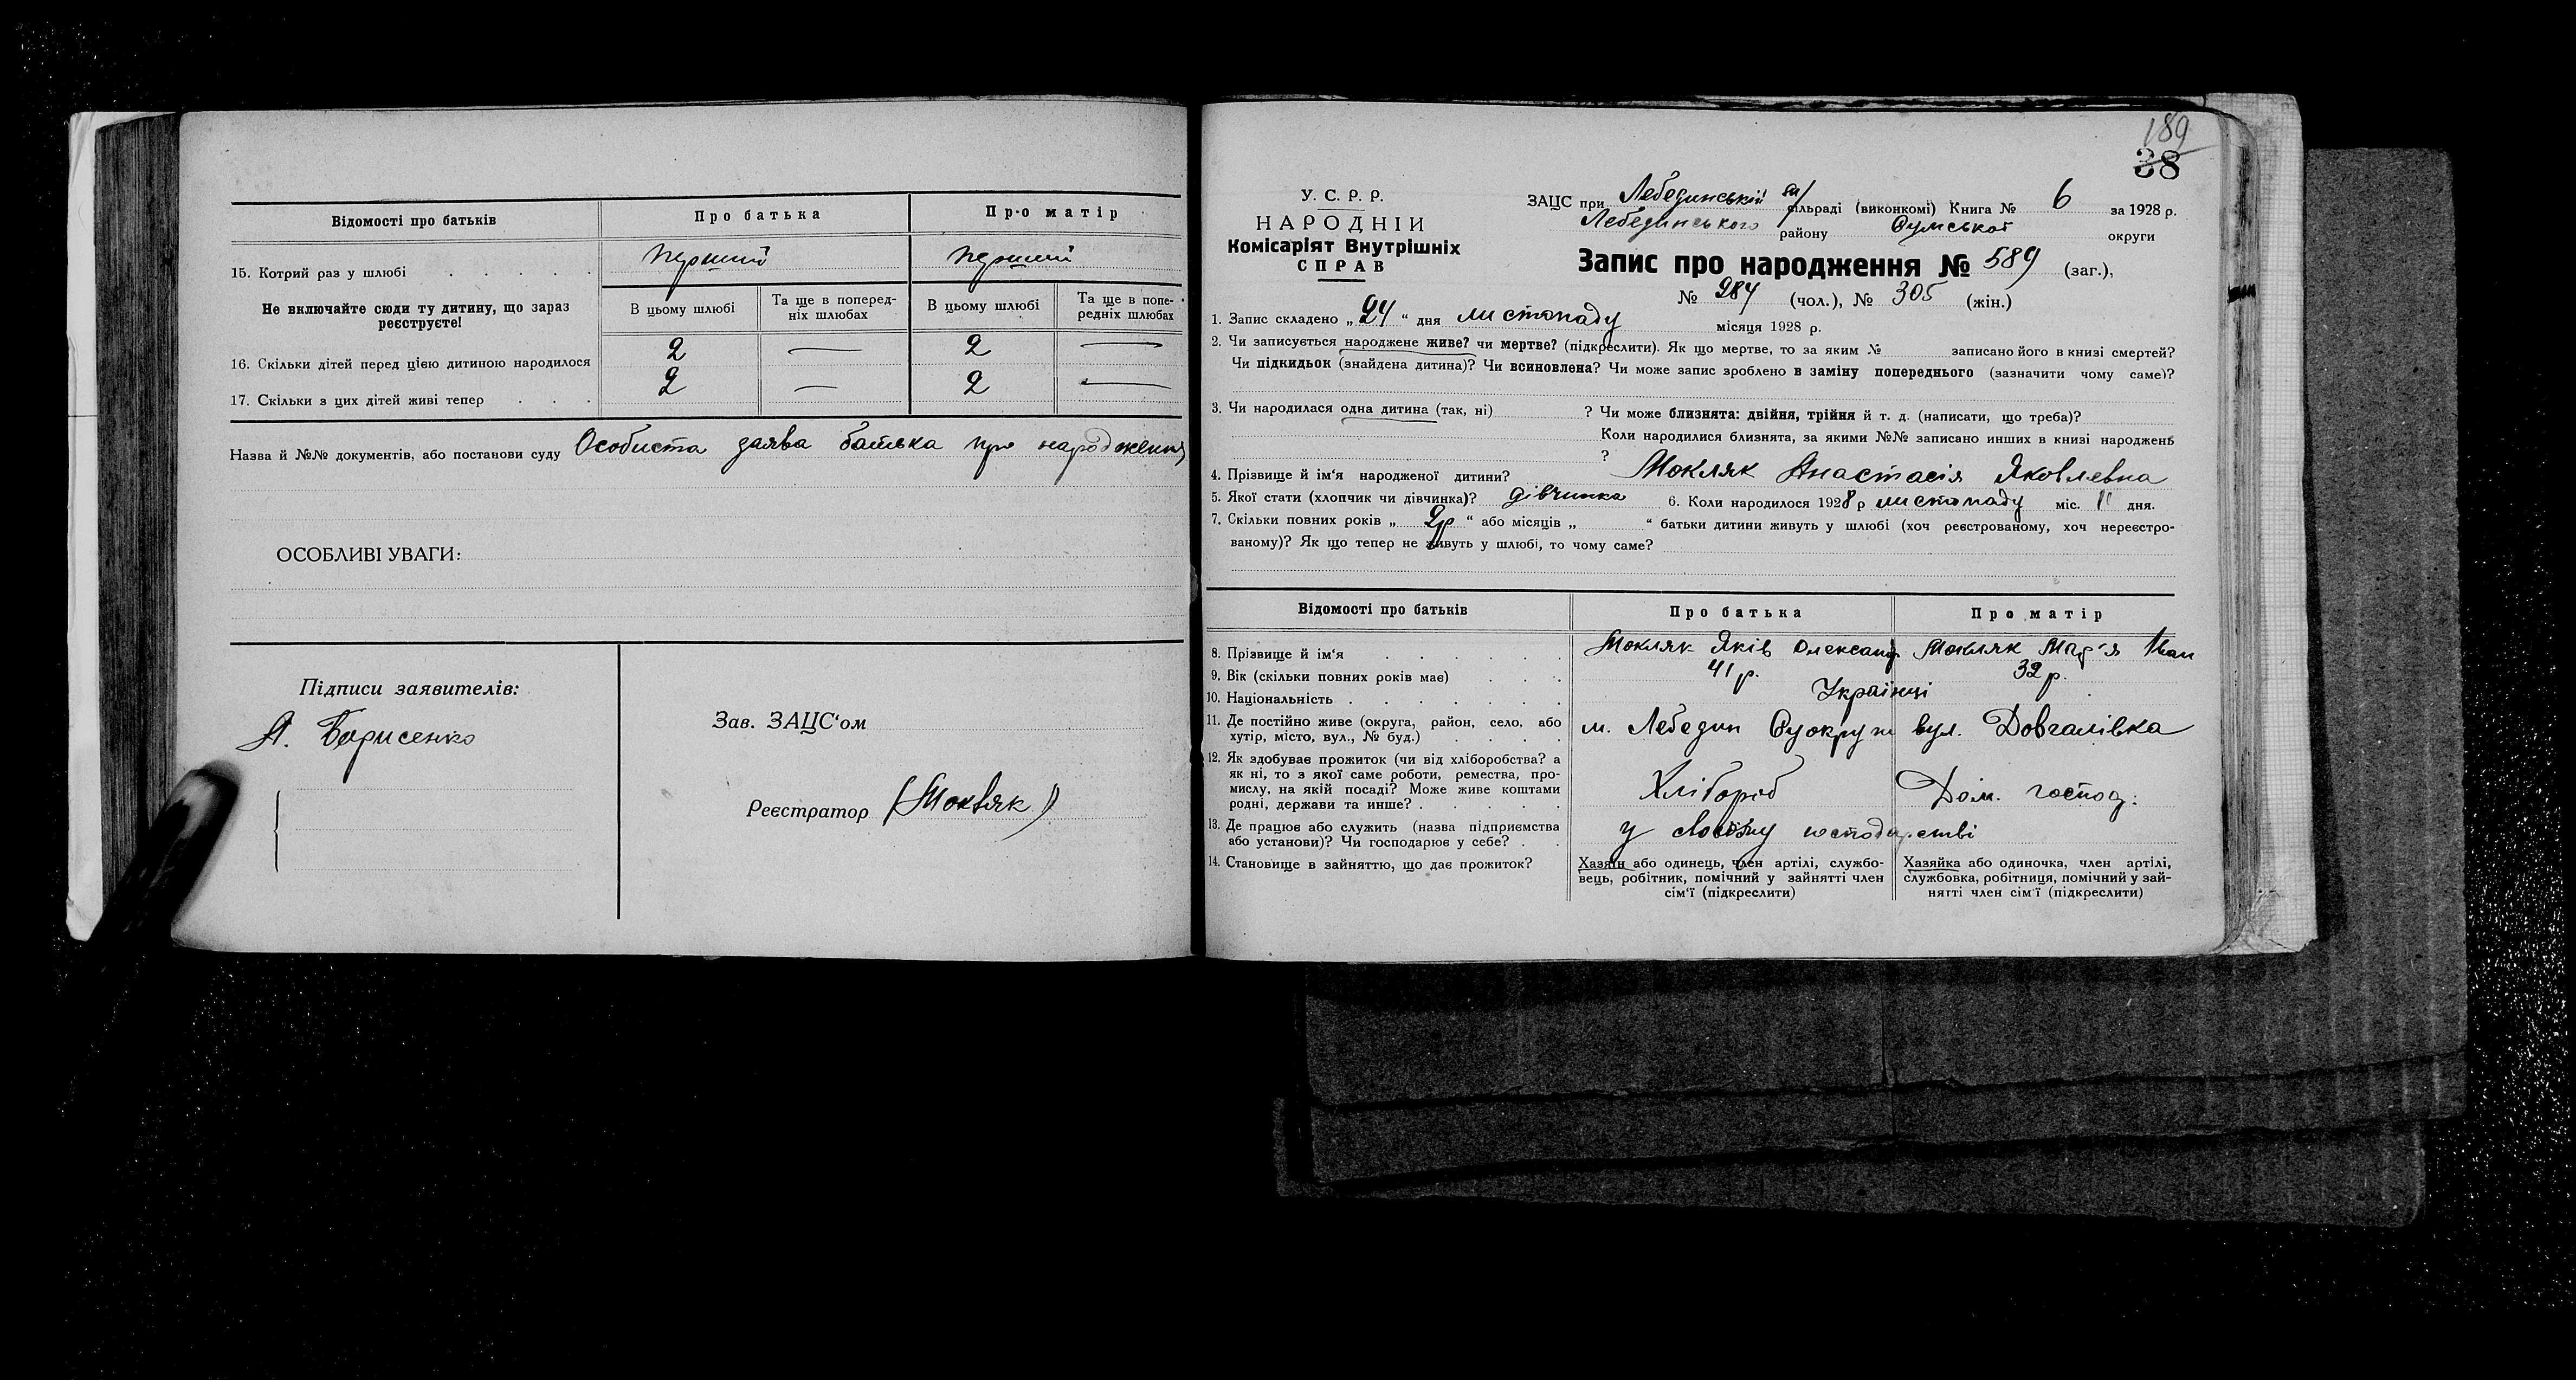 Відомості про батьків
Про батька
Про матір
15. Котрий раз у шлюбі . . . . .
перший
перший
Не включайте сюди ту дитину, що зараз
реєструєте!
В цьому шлюбі
Та ще в поперед-
ніх шлюбах
В цьому шлюбі
Та ще в попе-
редніх шлюбах
16. Скільки дітей перед цією дитиною народилося
2 — 2 —
17. Скільки з цих дітей живі тепер . . .
2 — 2 —
Назва й №№ документів, або постанови суду Особиста заява батька про народження
ОСОБЛИВІ УВАГИ:
Підписи заявителів:
А. Борисенко
Зав. ЗАЦС‘ом
Реєстратор (Мокляк)
189
38
У. С. Р. Р.
НАРОДНІЙ
Комісаріят Внутрішніх
СПРАВ
ЗАЦС при Лебединській сільраді (виконкомі) Книга № 6 за 1928 р.
Лебединського району Сумської округи
Запис про народження № 589 (заг.),
№ 284 (чол.), № 305 (жін.)
1. Запис складено „24“ дня листопаду місяця 1928 р.
2. Чи записується народжене живе? чи мертве? (підкреслити). Як що мертве, то за яким № записано його в книзі смертей?
Чи підкидьок (знайдена дитина)? Чи всиновлена? Чи може запис зроблено в заміну попереднього (зазначити чому саме)?
3. Чи народилася одна дитина (так, ні) ? Чи може близнята: двійня, трійня й т. д. (написати, що треба)?
Коли народилися близнята, за якими №№ записано инших в книзі народжень
?
4. Прізвище й ім‘я народженої дитини? Мокляк Анастасія Яковлевна
5. Якої стати (хлопчик чи дівчинка)? дівчинка 6. Коли народилося 1928 р листопаду міс. 11 дня.
7. Скільки повних років „ 2р “ або місяців „ “ батьки дитини живуть у шлюбі (хоч реєстрованому, хоч нереєстро-
ваному)? Як що тепер не живуть у шлюбі, то чому саме?
Відомості про батьків
Про батька
Про матір
8. Прізвище й ім‘я . . . . . .
Мокляк Яків Олександ
Мокляк Мар'я Іван
9. Вік (скільки повних років має) . . .
41 р.
32 р.
10. Національність . . . . . . .
Українці
11. Де постійно живе (округа, район, село, або
хутір, місто, вул., № буд.) . . . .
м. Лебедин Суокруги вул. Довгалівка
12. Як здобуває прожиток (чи від хліборобства? а
як ні, то з якої саме роботи, ремества, про-
мислу, на якій посаді? Може живе коштами
родні, держави та инше? . . . . .
Хлібороб
Дом. господ.
13. Де працює або служить (назва підприємства
або установи)? Чи господарює у себе? . .
у своєму господарстві
14. Становище в зайняттю, що дає прожиток?
Хазяїн або одинець, член артілі, службо-
вець, робітник, помічний у зайнятті член
сім‘ї (підкреслити)
Хазяйка або одиночка, член артілі,
службовка, робітниця, помічний у зай-
нятті член сім‘ї (підкреслити)